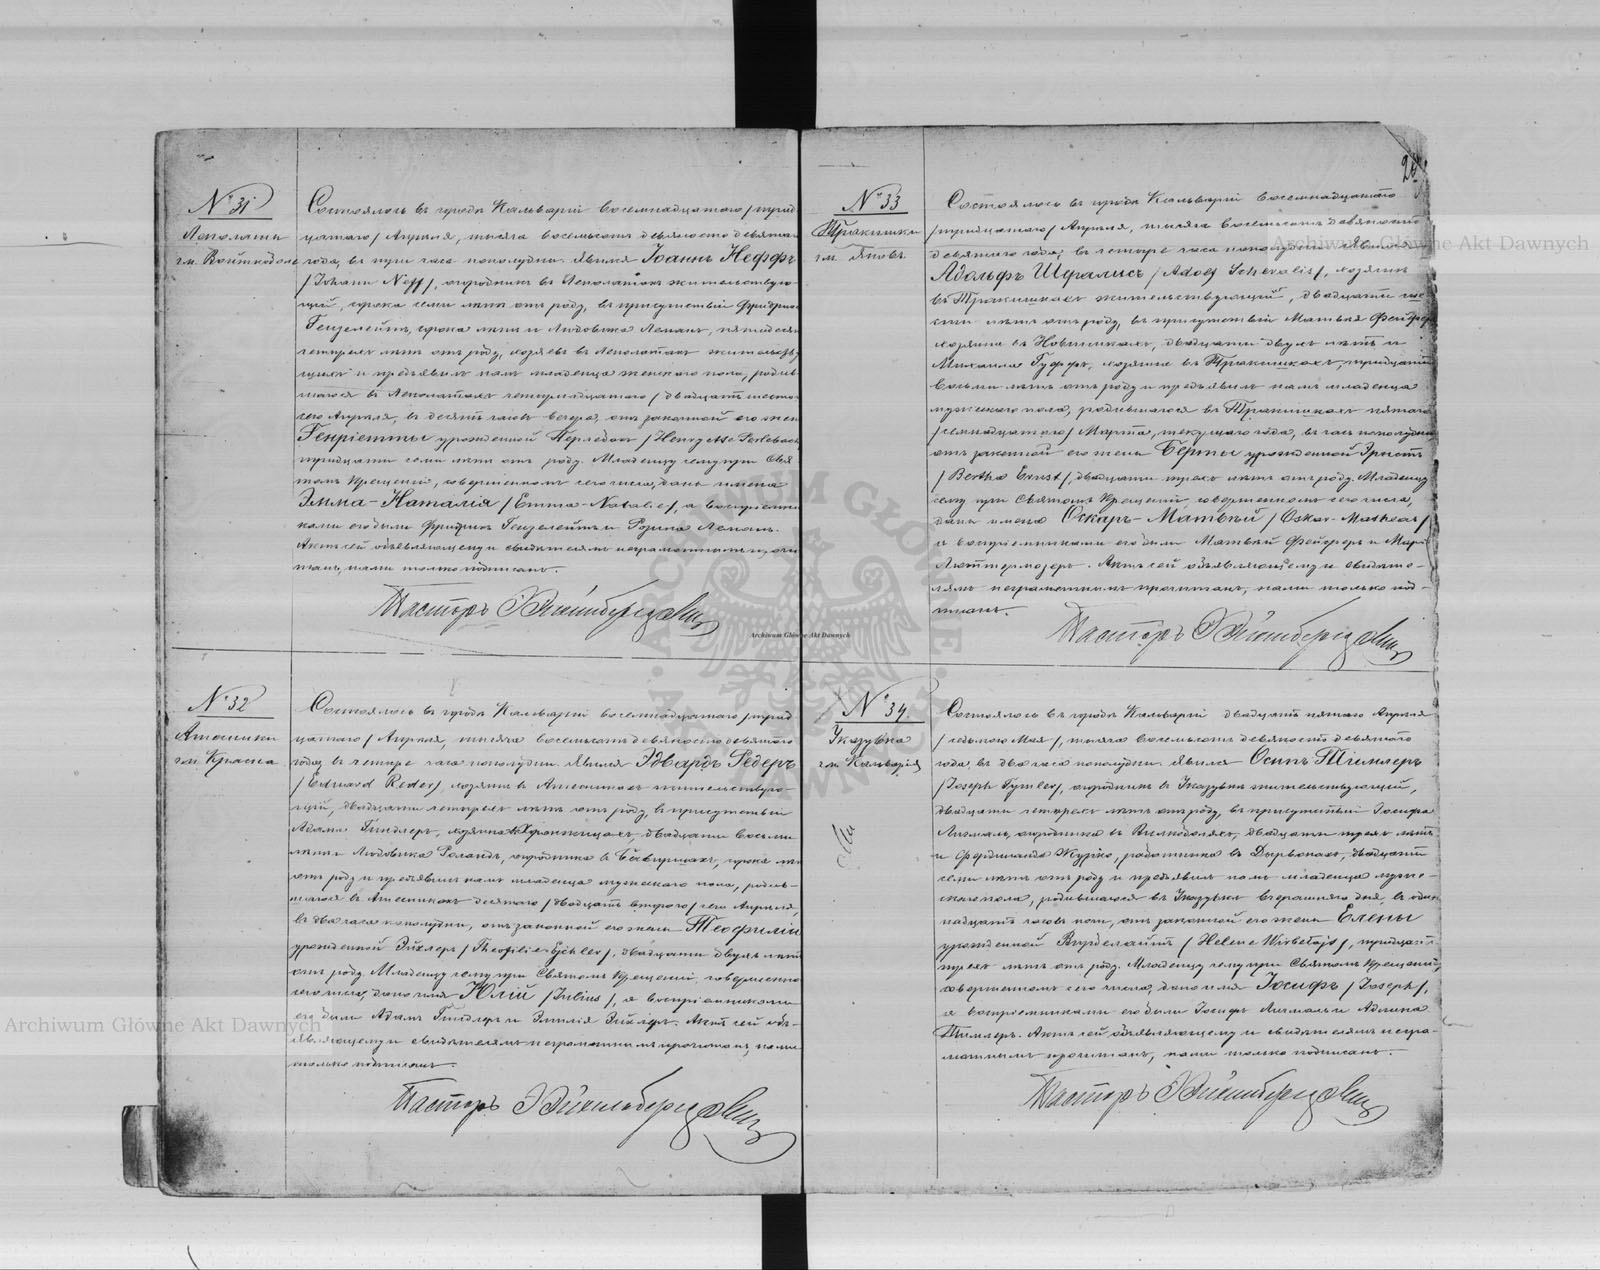 26
№ 31
гм. Войткобол
Состоялось въ городѣ Кальваріи восемнадцатаго /трид
цатаго/ Апрѣля, тысяча восемьсотъ девяносто девята
года, въ пять часа пополудни. Явился Іоаннъ Неффъ
/Johann Neff/, огородникъ въ жительствую-
щій, сорока семи лѣтъ отъ роду, въ присутствіи Фридриха
сорока лѣтъ и Людовика Леманъ, пятидеся
четырехъ лѣтъ отъ роду, хозяевъ въ жительству
щихъ и предъявилъ намъ младенца женскаго пола, родив
шагося въ четырнадцатаго /двадцать шесто
сего Апрѣля, въ десять часовъ вечера, отъ законной его жен
Генріетты урожденной Перлебахъ /Henryette Perlebach
тридцати семи лѣтъ отъ роду. Младенцу сему при Свя
томъ Крещеніи, совершенномъ сего числа, даны имена
Эмма-Наталія /Emma-Natalie/, а воспріемни
ками его были Фридрихъ и Розина Леманъ.
Актъ сей объявляющему и свидѣтелямъ неграмотнымъ прочи
танъ, нами только подписанъ.
Пасторъ
№ 32
гм. Красна
Состоялось въ городѣ Кальваріи восемнадцатаго /трид
цатаго/ Апрѣля, тысяча восемьсотъ девяносто девятаго
года, въ четыре часа пополудни. Явился Эдвардъ Редеръ
/Eduard Reder/, хозяинъ въ жительствую-
щій, двадцати четырехъ лѣтъ отъ роду, въ присутствіи
Адама Гиндлеръ, хозяина двадцати восьми
лѣтъ Людовика Роландъ, огородника въ сорока лѣ
отъ роду и предъявилъ намъ младенца мужескаго пола, родив-
шагося въ десятаго /двадцать втораго/ сего Апрѣля,
въ два часа пополудни, отъ законной его жены Теофиліи
урожденной Эйхлеръ /Theofilie Eichler/, двадцати двухъ лѣтъ
отъ роду. Младенцу сему при Святомъ Крещеніи, совершенно
сего числа, дано имя Юлій /Julius/, а воспріемниками
его были Адамъ Гиндлеръ и Эмилія Эйхлеръ. Актъ сей объ-
являющему и свидѣтелямъ неграмотнымъ прочитанъ, нами
только подписанъ.
Пасторъ
№ 33
Тракишки
гм. Яновъ
Состоялось въ городѣ Кальваріи восемнадцатаго
/тридцатаго/ Апрѣля, тысяча восемьсотъ девяносто
девятаго года, въ четыре часа пополудни. Явился
Адольфъ Шфалисъ /Adolf Schevalis/, хозяинъ
въ Тракишкахъ жительствующій, двадцати
лѣтъ отъ роду, въ присутствіи Матвѣя Фейферъ
хозяина въ Новинкахъ, двадцати двухъ лѣтъ и
Михаила Гуффъ, хозяина въ Тракишкахъ, тридцати
восьми лѣтъ отъ роду и предъявилъ намъ младенца
мужескаго пола, родившагося въ Тракишкахъ пятаго
/семнадцатаго/ Марта, текущаго года, въ часъ пополудни
отъ законной его жены Берты урожденной Эрнстъ
/Bertha Ernst/, двадцати трехъ лѣтъ отъ роду. Младенцу
сему при Святомъ Крещеніи совершенномъ сего числа,
даны имена Оскаръ-Матвѣй /Oskar-Matheas/
а воспріемниками его были Матвѣй Фейферъ и Мар
Актъ сей объявляющему и свидѣте-
лямъ неграмотнымъ прочитанъ, нами только под-
писанъ.
Пасторъ
№ 34
Указувка
гм. Кальварія
Состоялось въ городѣ Кальваріи двадцать пятаго Апрѣля
/седьмаго Мая/, тысяча восемьсотъ девяносто девятаго
года, въ два часа пополудни. Явился Осипъ Тимлеръ
/Joseph Tymler/, огородникъ въ Указувкѣ жительствующій,
двадцати четырехъ лѣтъ отъ роду, въ присутствіи Іосифа
огородника въ двадцати трехъ лѣтъ
и Фердинанда работника въ двадцати
семи лѣтъ отъ роду и предъявилъ намъ младенца муже-
скаго пола, родившагося въ Указувкѣ вчерашняго дня, въ один
надцать часовъ ночи, отъ законной его жены Елены
урожденной Вирбелайтъ /Helene Wirbelajt/, тридцати
трехъ лѣтъ отъ роду. Младенцу сему при Святомъ Крещеніи,
совершенномъ сего числа, дано имя Іосифъ /Joseph/,
а воспріемниками его были Іосифъ и
Тимлеръ. Актъ сей объявляющему и свидѣтелямъ негра-
мотнымъ прочитанъ, нами только подписанъ.
Пасторъ
Archiwum Główne Akt Dawnych
Archiwum Główne Akt Dawnych
Archiwum Główne Akt Dawnych
ARCHIWUM GŁÓWNE AKT DAWNYCH